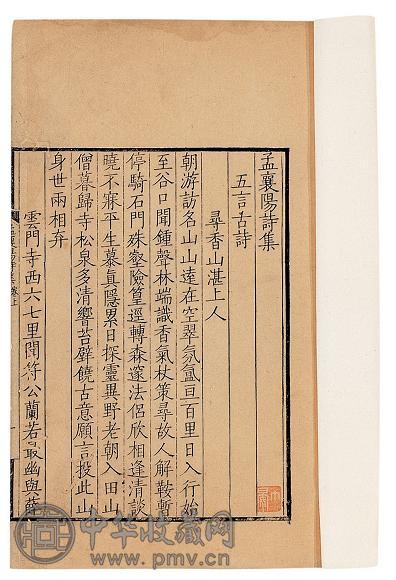 孟襄陽詩集
五言古詩
尋香山湛上人
朝游訪名山山遠在空翠氛氳亘百里日入行始
至谷口聞鍾聲林端識香氣杖策尋故人解鞍暫
停騎石門殊壑險篁逕轉森邃法侶欣相逢清談
曉不寐平生慕眞隱累日探靈異野老朝入田山
僧暮歸寺松泉多清響苔壁饒古意願言投此山
身世兩相弃
雲門寺西六七里聞符公蘭若最幽與薛
中华收藏网
www.pmv.cn